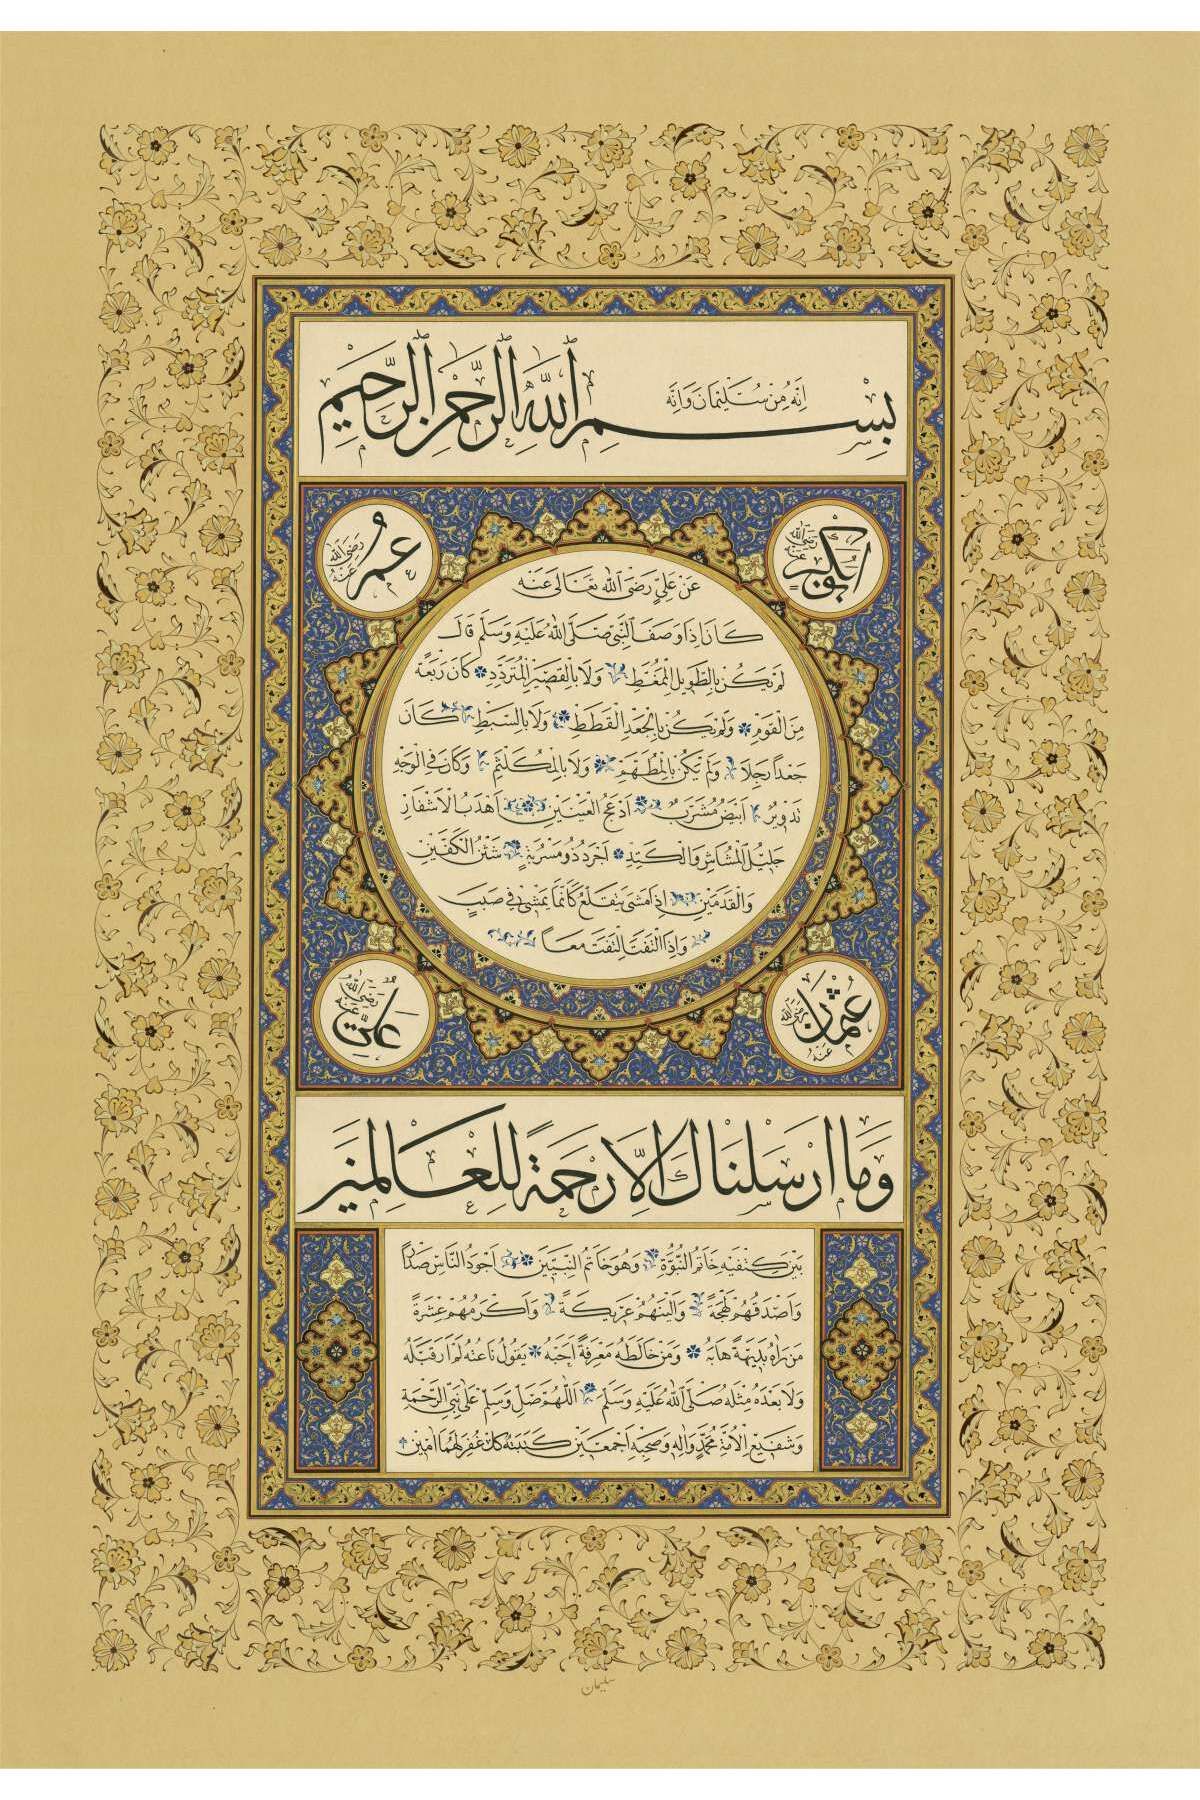 بِسْمِ اللهِ الرَّحْمٰنِ الرَّحِيمِ
اِنَّهُ مِنْ سُلَيْمَانَ وَاِنَّهُ
ابوبكر رَضِيَ اللهُ عَنْهُ
عُمَر رَضِيَ اللهُ عَنْهُ
عَنْ عَلِيٍّ رَضِيَ اللهُ تَعَالَى عَنْهُ
كَانَ اِذَا وَصَفَ النَّبِيَّ صَلَّى اللهُ عَلَيْهِ وَسَلَّمَ قَالَ
لَمْ يَكُنْ بِالطَّوِيلِ الْمُمَّغِطِ وَلَا بِالْقَصِيرِ الْمُتَرَدِّدِ كَانَ رَبْعَةً
مِنَ الْقَوْمِ وَلَمْ يَكُنْ بِالْجَعْدِ الْقَطَطِ وَلَا بِالسَّبِطِ كَانَ
جَعْدًا رَجِلًا وَلَمْ يَكُنْ بِالْمُطَهَّمِ وَلَا بِالْمُكَلْثَمِ وَكَانَ فِي الْوَجْهِ
تَدْوِيرٌ اَبْيَضُ مُشْرَبٌ اَدْعَجُ الْعَيْنَيْنِ اَهْدَبُ الْاَشْفَارِ
جَلِيلُ الْمُشَاشِ وَالْكَتَدِ اَجْرَدُ ذُو مَسْرُبَةٍ شَثْنُ الْكَفَّيْنِ
وَالْقَدَمَيْنِ اِذَا مَشَى يَتَقَلَّعُ كَاَنَّمَا يَمْشِي فِي صَبَبٍ
وَاِذَا الْتَفَتَ الْتَفَتَ مَعًا
عُثْمَان رَضِيَ اللهُ عَنْهُ
عَلِيّ رَضِيَ اللهُ عَنْهُ
وَمَا اَرْسَلْنَاكَ اِلَّا رَحْمَةً لِلْعَالَمِينَ
بَيْنَ كَتِفَيْهِ خَاتَمُ النُّبُوَّةِ وَهُوَ خَاتَمُ النَّبِيِّينَ اَجْوَدُ النَّاسِ صَدْرًا
وَاَصْدَقُهُمْ لَهْجَةً وَاَلْيَنُهُمْ عَرِيكَةً وَاَكْرَمُهُمْ عِشْرَةً
مَنْ رَاٰهُ بَدِيهَةً هَابَهُ وَمَنْ خَالَطَهُ مَعْرِفَةً اَحَبَّهُ يَقُولُ نَاعِتُهُ لَمْ اَرَ قَبْلَهُ
وَلَا بَعْدَهُ مِثْلَهُ صَلَّى اللهُ عَلَيْهِ وَسَلَّمَ اَللّٰهُمَّ صَلِّ وَسَلِّمْ عَلَى نَبِيِّ الرَّحْمَةِ
وَشَفِيعِ الْاُمَّةِ مُحَمَّدٍ وَاٰلِهِ وَصَحْبِهِ اَجْمَعِينَ كَتَبَتْهُ غُفِرَ لَهُمَا اٰمِينَ
سليمان